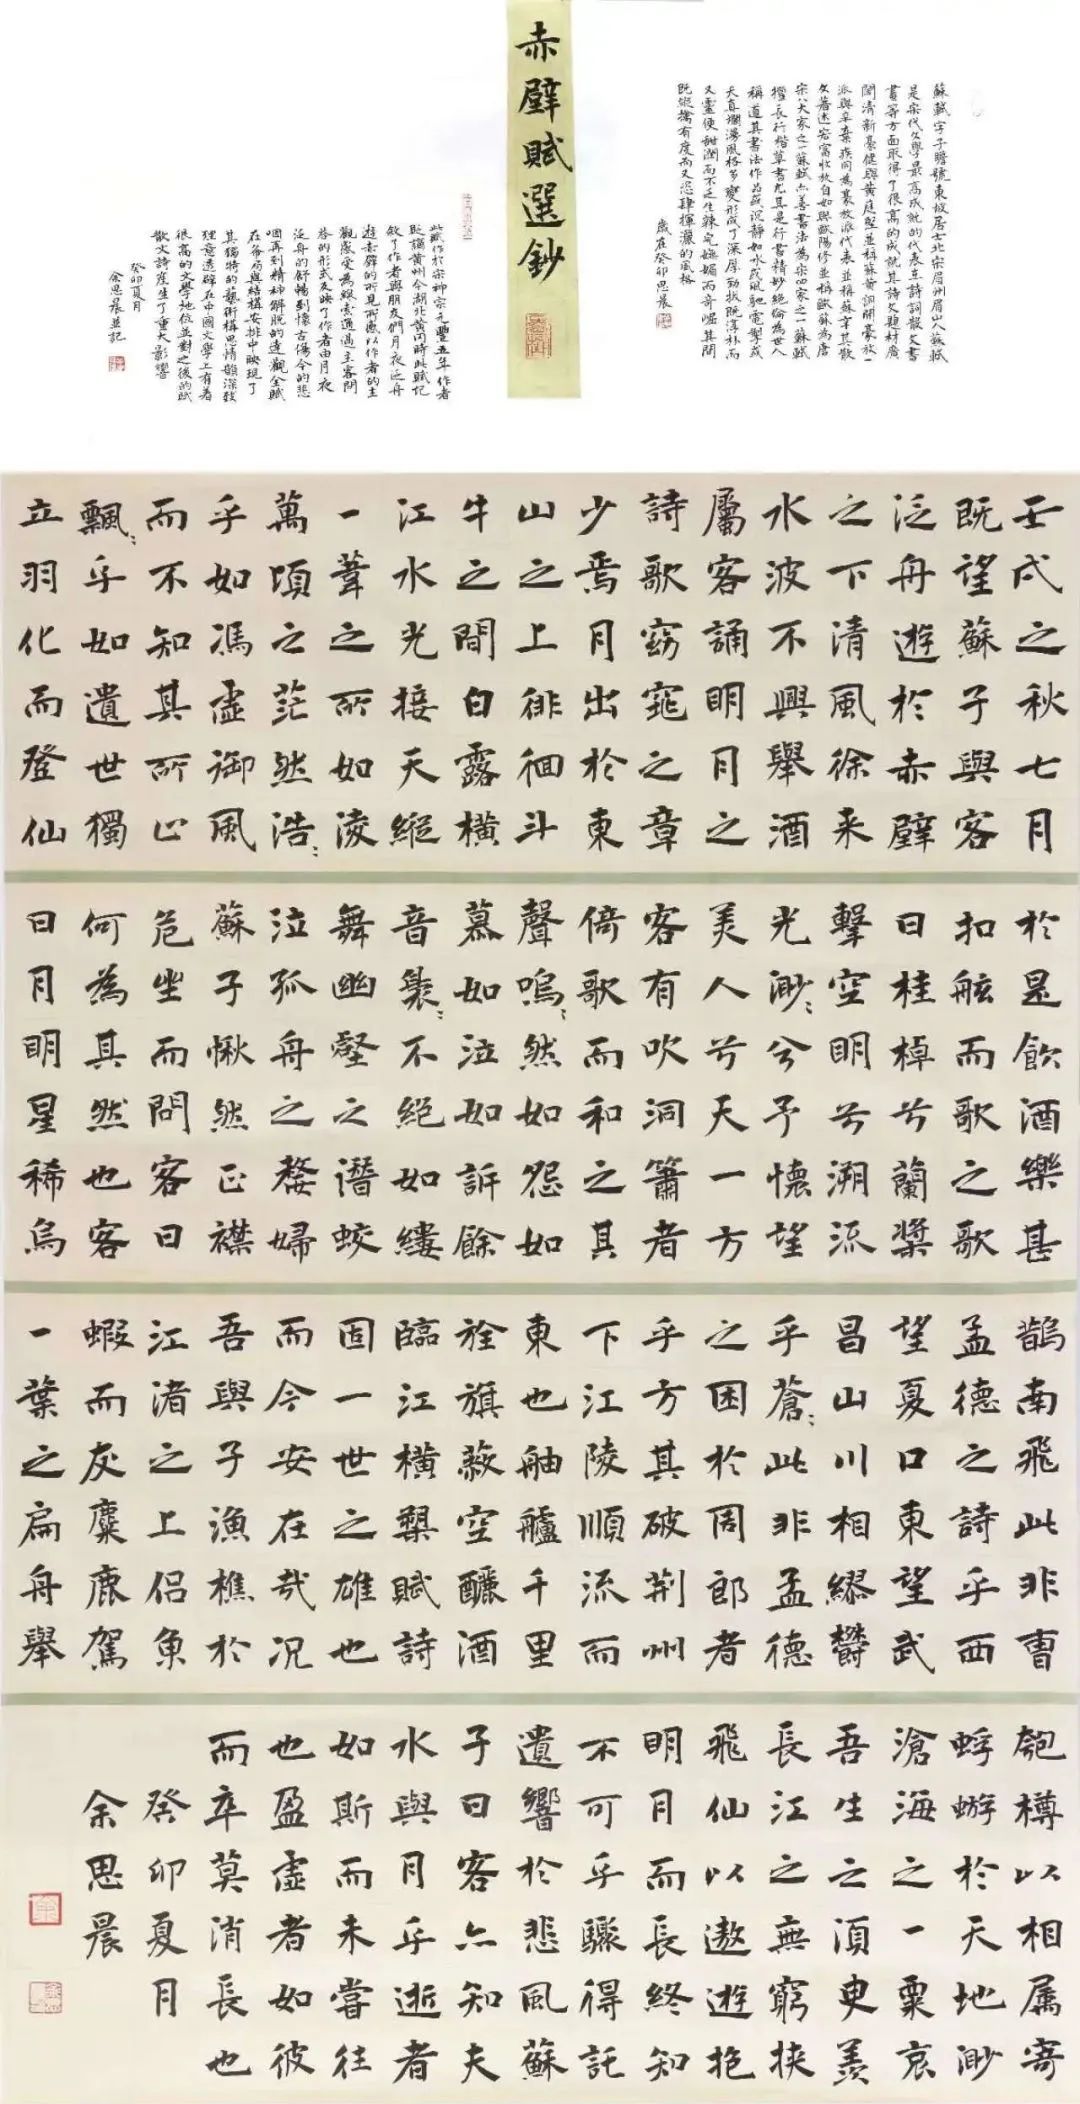 蘇軾字子瞻號東坡居士北宋眉州眉山人蘇軾
是宋代文學最高成就的代表在詩詞散文書
畫等方面取得了很高的成就其詩文題材廣
闊清新豪健與黃庭堅並稱蘇黃詞開豪放一
派與辛棄疾同為豪放派代表並稱蘇辛其散
文著述宏富收放自如與歐陽修並稱歐蘇為唐
宋八大家之一蘇軾亦善書法為宋四家之一蘇軾
擅長行楷草書尤其是行書精妙絕倫為世人
稱道其書法作品或沉靜如水或風馳電掣或
天真爛漫風格多變形成了深厚勁拔既淳朴而
又靈便甜潤而不乏生辣宅嫵媚而奇崛其間
既縱擒有度而又恣肆揮灑的風格
歲在癸卯思晨
赤壁賦選鈔
此賦作於宋神宗元豐五年作者
貶謫黃州今湖北黃岡時此賦記
敘了作者與朋友們月夜泛舟
遊赤壁的所見所感以作者的主
觀感受為線索通過主客問
答的形式反映了作者由月夜
泛舟的舒暢到懷古傷今的悲
咽再到精神解脫的達觀全賦
在布局與結構安排中映現了
其獨特的藝術構思情韻深致
理意透辟在中國文學上有着
很高的文學地位並對之後的賦
散文詩產生了重大影響
癸卯夏月
余思晨並記
壬戌之秋七月
既望蘇子與客
泛舟遊於赤壁
之下清風徐來
水波不興舉酒
屬客誦明月之
詩歌窈窕之章
少焉月出於東
山之上徘徊斗
牛之間白露橫
江水光接天縱
一葦之所如凌
萬頃之茫然浩:
乎如馮虛御風
而不知其所止
飄:乎如遺世獨
立羽化而登仙
於是飲酒樂甚
扣舷而歌之歌
曰桂棹兮蘭槳
擊空明兮溯流
光渺:兮予懷望
美人兮天一方
客有吹洞簫者
倚歌而和之其
聲嗚:然如怨如
慕如泣如訴餘
音裊:不絕如縷
舞幽壑之潛蛟
泣孤舟之嫠婦
蘇子愀然正襟
危坐而問客曰
何為其然也客
曰月明星稀烏
鵲南飛此非曹
孟德之詩乎西
望夏口東望武
昌山川相繆鬱
乎蒼:此非孟德
之困於周郎者
乎方其破荊州
下江陵順流而
東也舳艫千里
旌旗蔽空釃酒
臨江橫槊賦詩
固一世之雄也
而今安在哉況
吾與子漁樵於
江渚之上侶魚
蝦而友麋鹿駕
一葉之扁舟舉
匏樽以相屬寄
蜉蝣於天地渺
滄海之一粟哀
吾生之須臾羨
長江之無窮挾
飛仙以遨遊抱
明月而長終知
不可乎驟得託
遺響於悲風蘇
子曰客亦知夫
水與月乎逝者
如斯而未嘗往
也盈虛者如彼
而卒莫消長也
癸卯夏月
余思晨